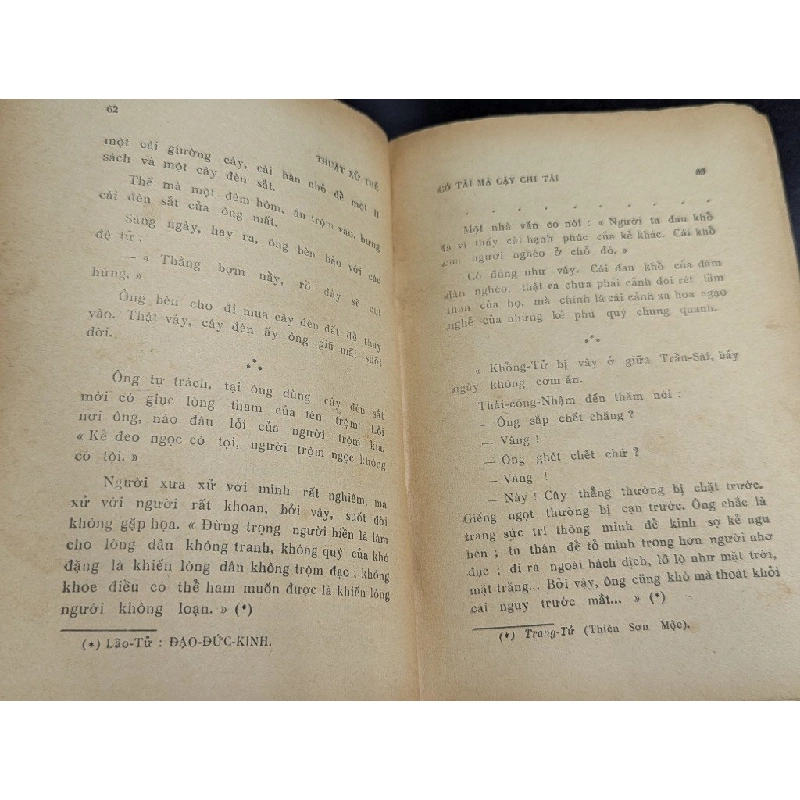 62
THUẬT XỬ THẾ
một cái giường cây, cái bàn nhỏ để một ít
sách và một cây đèn sắt.
Thế mà một đêm hôm, ăn trộm vào, bưng
cái đèn sắt của ông mất.
Sáng ngày, hay ra, ông bèn bảo với các
đệ tử :
— « Thằng bợm nầy, rồ dây sẽ cụt
hứng. »
Ông bèn cho đi mua cây đèn đất để thay
vào. Thật vậy, cây đèn ấy ông giữ mãi suốt
đời.
Ông tự trách, tại ông dùng cây đèn sắt
mới có giục lòng tham của tên trộm. Lỗi
nơi ông, nào đâu lỗi của người trộm kia.
« Kẻ đeo ngọc có tội, người trộm ngọc không
có tội. »
Người xưa xử với mình rất nghiêm, mà
xử với người rất khoan, bởi vậy, suốt đời
không gặp họa. « Đừng trọng người hiền là làm
cho lòng dân không tranh, không quý của khó
đặng là khiến lòng dân không trộm đạo ; không
khoe điều có thể ham muốn được là khiến lòng
người không loạn. » (*)
(*) Lão-Tử : ĐẠO-ĐỨC-KINH.
CÓ TÀI MÀ CẬY CHI TÀI
63
Một nhà văn có nói : « Người ta đau khổ
là vì thấy cái hạnh phúc của kẻ khác. Cái khổ
của người nghèo ở chỗ đó. »
Có đúng như vậy. Cái đau khổ của đám
dân nghèo, thật ra chưa phải cảnh đói rét lầm
than của họ, mà chính là cái cảnh xa hoa ngạo
nghễ của những kẻ phú quý chung quanh.
« Khổng-Tử bị vây ở giữa Trần-Sái, bảy
ngày không cơm ăn.
Thái-công-Nhậm đến thăm nói :
— Ông sắp chết chăng ?
— Vâng !
— Ông ghét chết chứ ?
— Vâng !
— Này ! Cây thẳng thường bị chặt trước.
Giếng ngọt thường bị cạn trước. Ông chắc là
trang sức trí thông minh để kinh sợ kẻ ngu
hèn ; tu thân để tỏ mình trong hơn người nhơ
đục ; đi ra ngoài hách dịch, lồ lộ như mặt trời,
mặt trăng... Bởi vậy, ông cũng khó mà thoát khỏi
cái nguy trước mắt... » (*)
(*) Trang-Tử (Thiên Sơn Mộc).